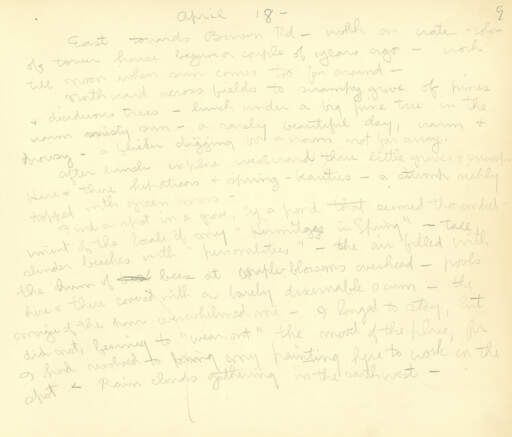 April 18 – 9
East towards Benson Rd – work on water-color
of tower house begun a couple of years ago – work
till noon when sun comes too far around –
Northward across fields to swampy grove of pines
& deciduous trees – lunch under a big pine tree in the
warm sun – a rarely beautiful day, warm &
drowsy – a digging in a not far away.
After lunch explore westward thru little groves &
Here & there hepaticas & spring-beauties – a stump richly
topped with green moss –
Find a spot in a grove, by a pond that seemed the embodi-
ment of the locale of my "Hermitage in Spring" – tall
slender beeches with "personalities" – the air filled with
the hum of bees at maple blossoms overhead – pools
here & there covered with a barely discernable scum – the
of the overwhelmed me – I longed to stay, but
did not, fearing to "wear out" the mood of the place, for
I had resolved to bring my painting here to work on the
spot – Rain clouds gathering in the southwest –